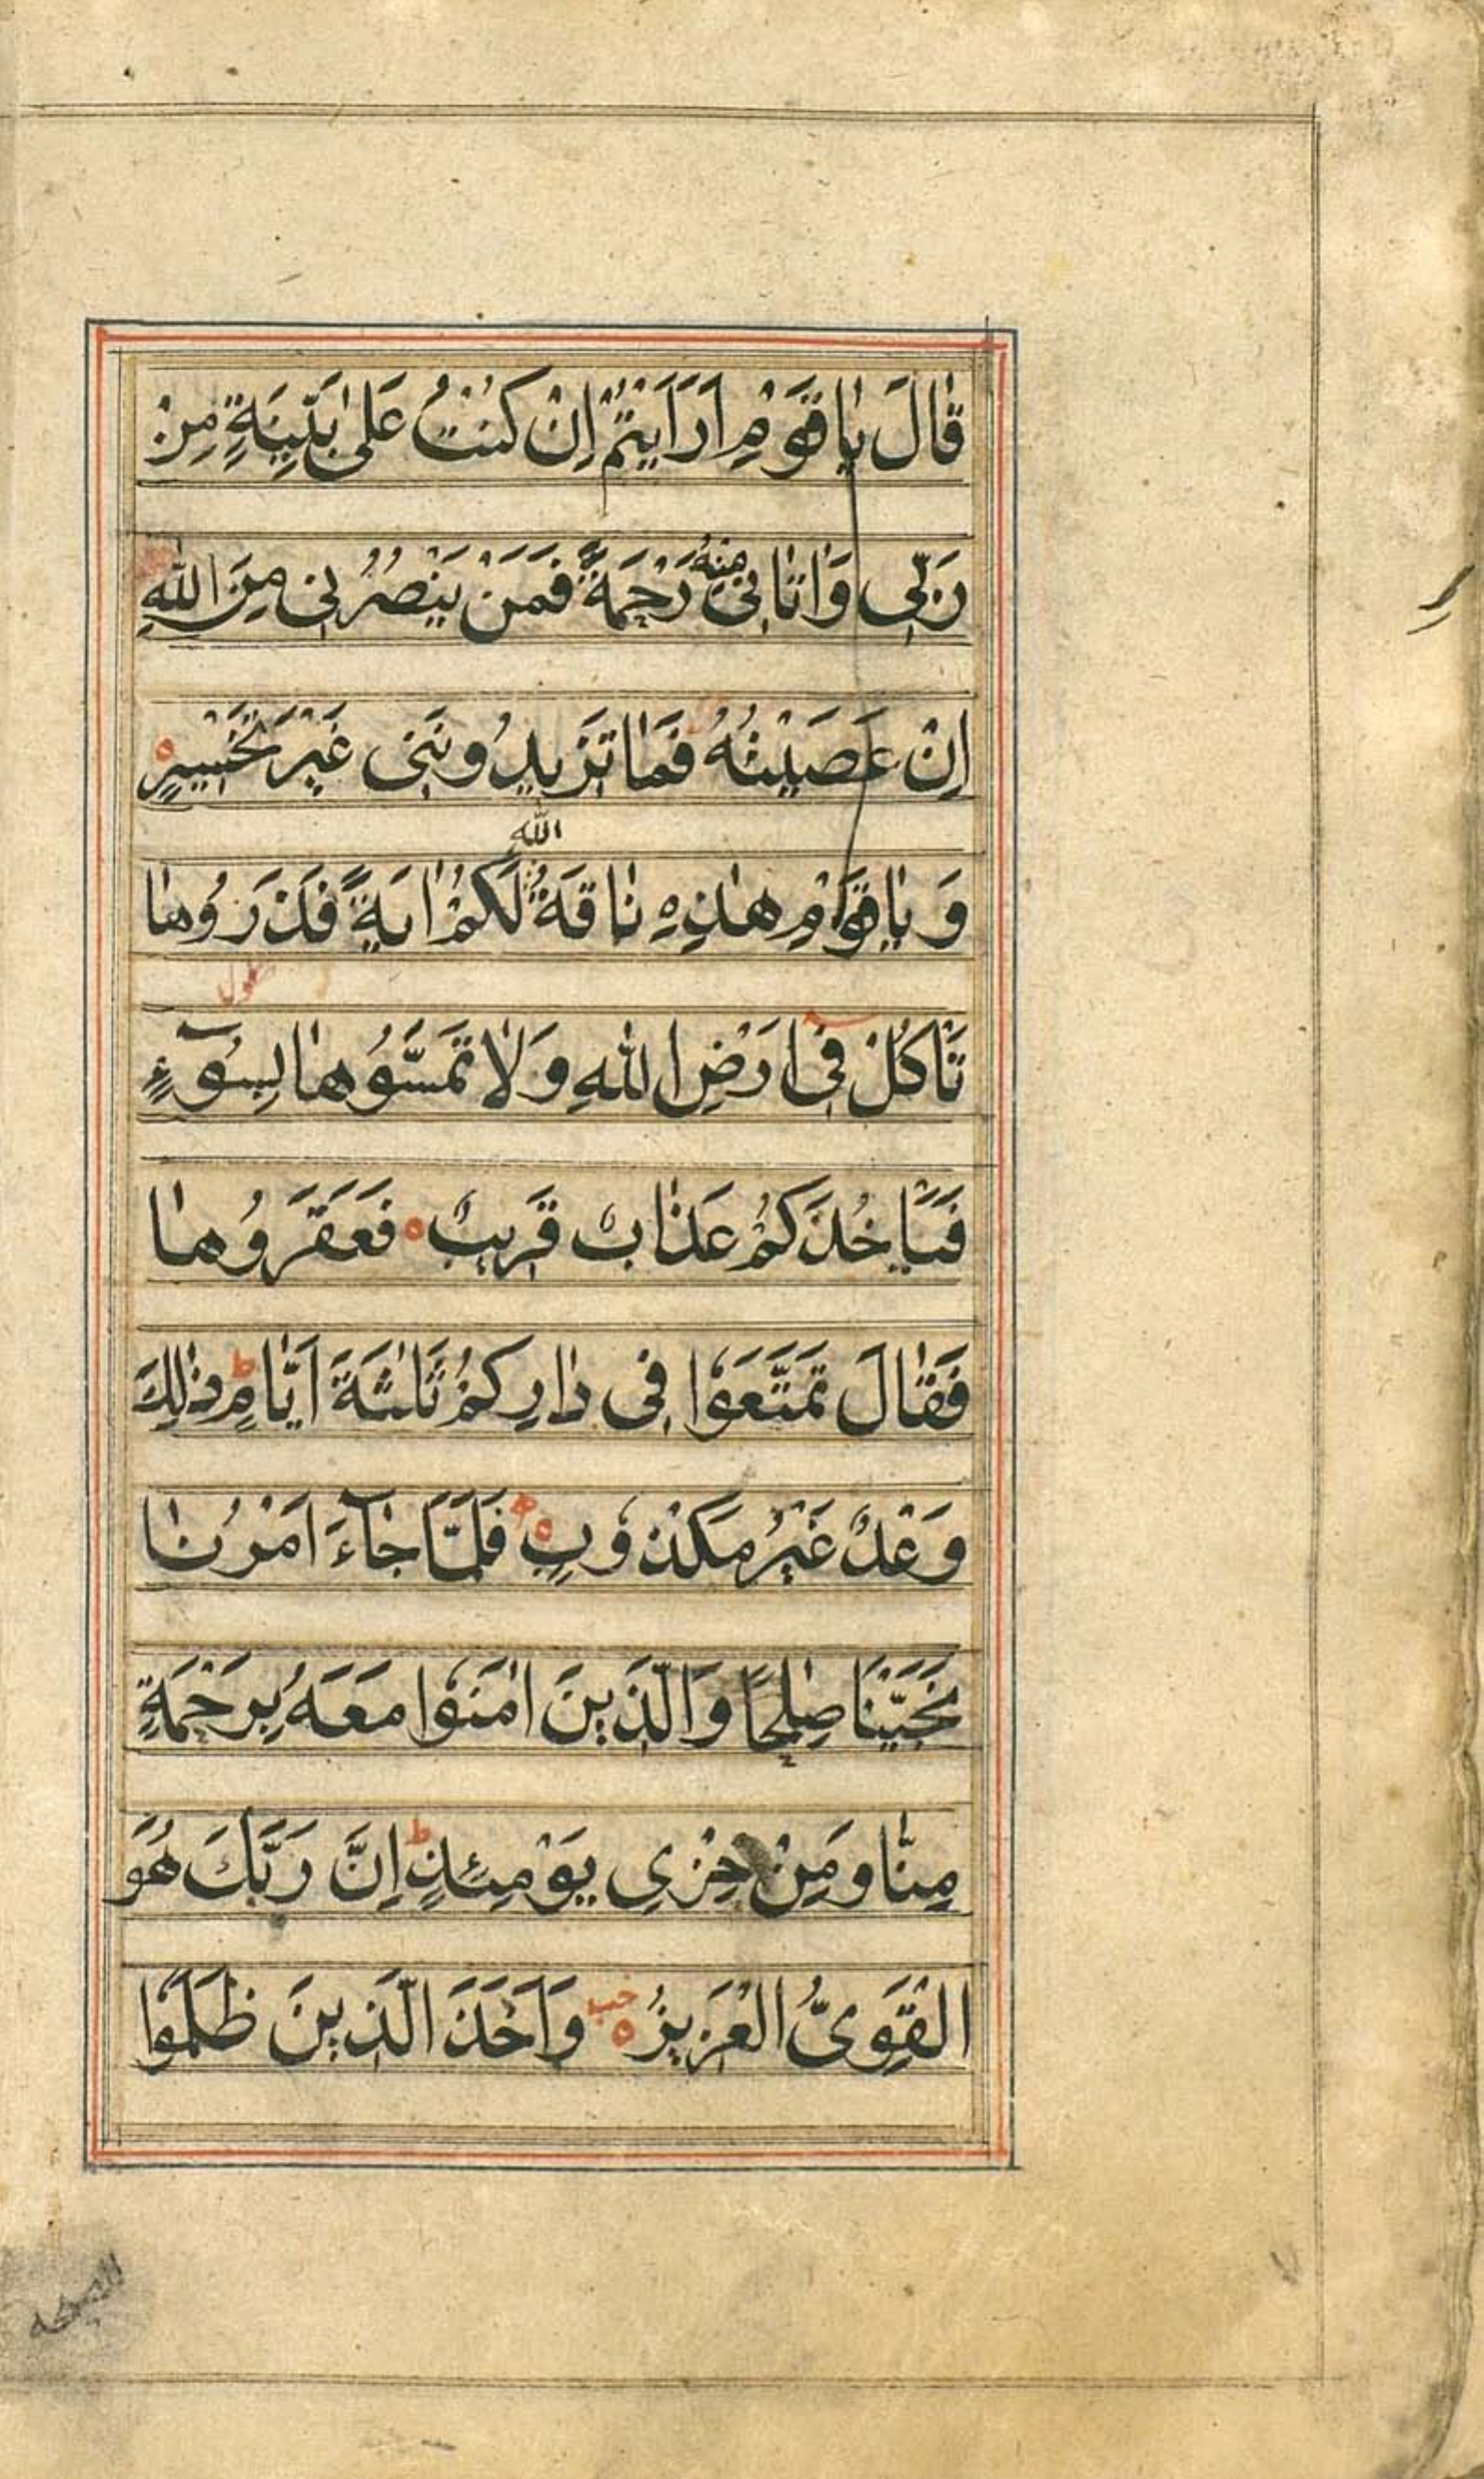 قَالَ يَاقَوْمِ اَرَاَيْتُمْ اِنْ كُنْتُ عَلىٰ بَيِّنَةٍ مِنْ
رَبّى وَاٰتَانى مِنْهُ رَحْمَةً فَمَنْ يَنْصُرُنى مِنَ اللّٰهِ
اِنْ عَصَيْتُهُ فَمَا تَزيدُونَنى غَيْرَ تَخْسيرٍ ه
اللّٰه
وَ يَاقَوْمِ هٰذِهِ نَاقَةُ لَكُمْ اٰيَةً فَذَرُوهَا
تَاْكُلْ فى اَرْضِ اللّٰهِ وَلَا تَمَسُّوهَا بِسُوٓءٍ
فَيَاْخُذَكُمْ عَذَابٌ قَريبٌ ه فَعَقَرُوهَا
فَقَالَ تَمَتَّعُوا فى دَارِكُمْ ثَلٰثَةَ اَيَّامٍ ط ذٰلِكَ
وَعْدٌ غَيْرُ مَكْذُوبٍ ه فَلَمَّا جَآءَ اَمْرُنَا
نَجَّيْنَا صٰلِحًا وَالَّذينَ اٰمَنُوا مَعَهُ بِرَحْمَةٍ
مِنَّا وَمِنْ خِزْىِ يَوْمِئِذٍ ط اِنَّ رَبَّكَ هُوَ
الْقَوِىُّ الْعَزيزُ ه وَاَخَذَ الَّذينَ ظَلَمُوا
الصيحه